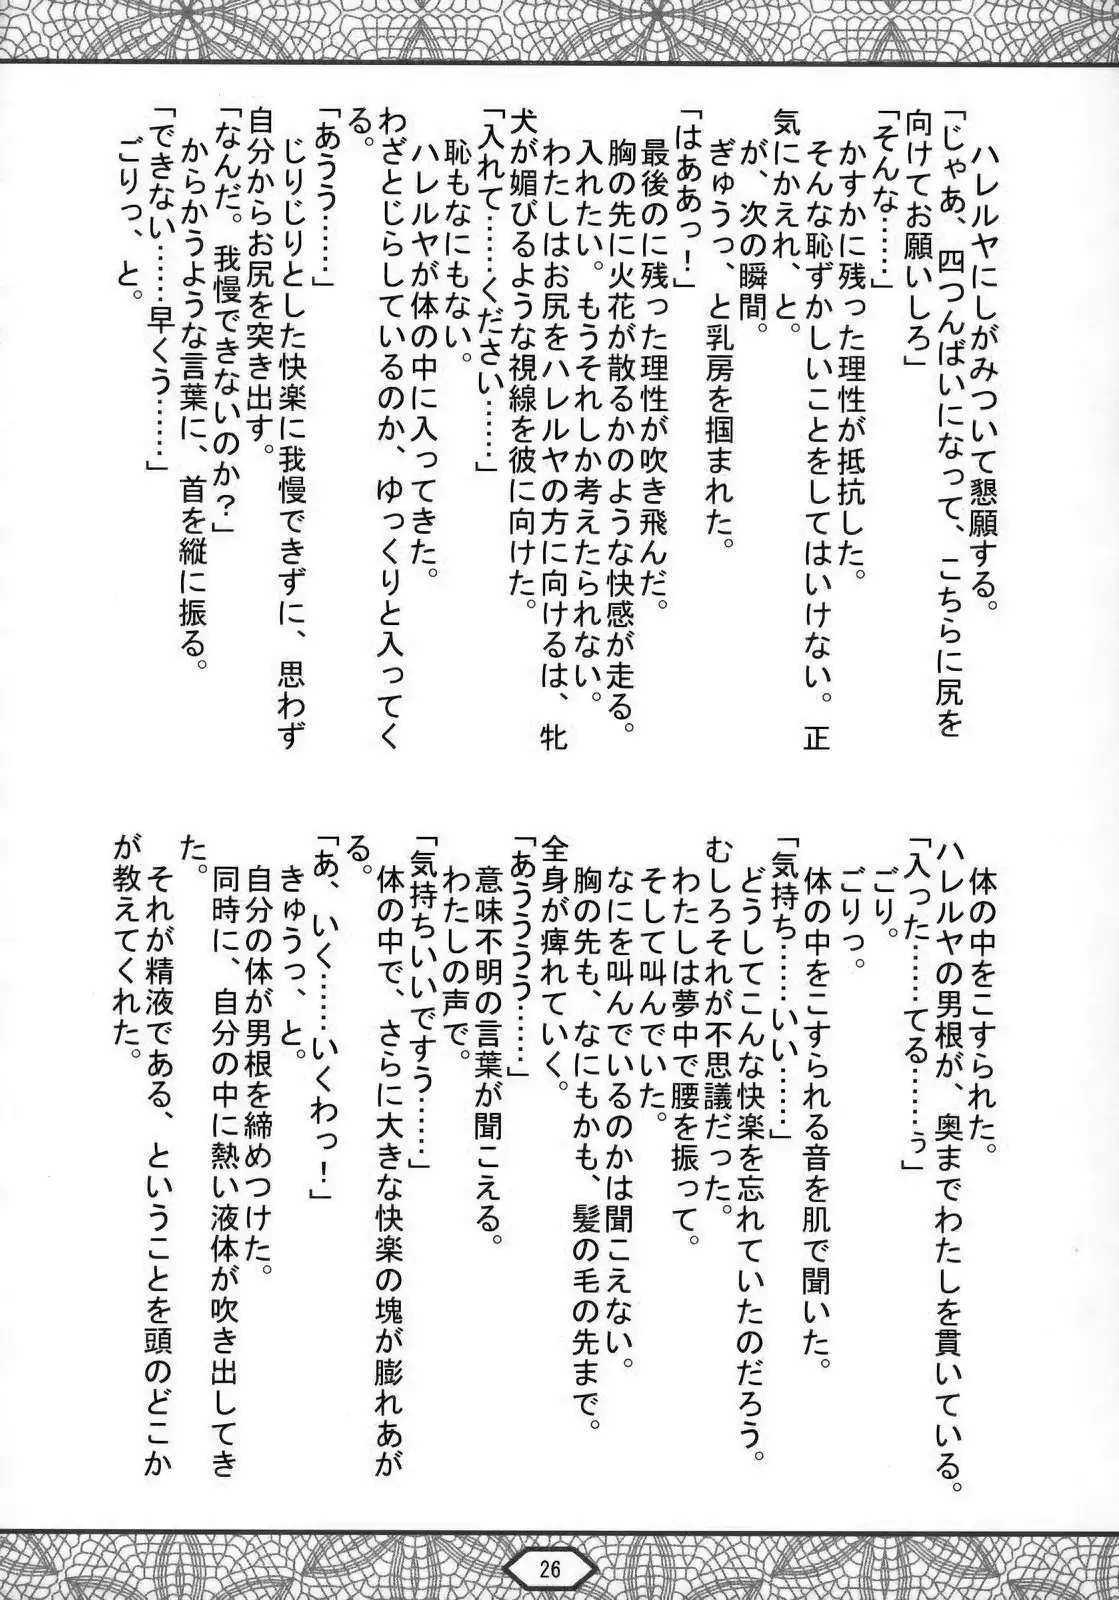 ハレルヤにしがみついて懇願する。
「じゃあ、四つんばいになって、こちらに尻を
向けてお願いしろ」
「そんな……」
かすかに残った理性が抵抗した。
そんな恥ずかしいことをしてはいけない。正
気にかえれ、と。
が、次の瞬間。
ぎゅうっ、と乳房を掴まれた。
「はああっ！」
最後のに残った理性が吹き飛んだ。
胸の先に火花が散るかのような快感が走る。
入れたい。もうそれしか考えたられない。
わたしはお尻をハレルヤの方に向けるは、牝
犬が媚びるような視線を彼に向けた。
「入れて……ください……」
恥もなにもない。
ハレルヤが体の中に入ってきた。
わざとじらしているのか、ゆっくりと入ってく
る。
「あうう……」
じりじりとした快楽に我慢できずに、思わず
自分からお尻を突き出す。
「なんだ。我慢できないのか？」
からかうような言葉に、首を縦に振る。
「できない……早くう……」
ごりっ、と。
体の中をこすられた。
ハレルヤの男根が、奥までわたしを貫いている。
「入った……てる……ぅ」
ごり。
ごりっ。
体の中をこすられる音を肌で聞いた。
「気持ち……いい……」
どうしてこんな快楽を忘れていたのだろう。
むしろそれが不思議だった。
わたしは夢中で腰を振って。
そして叫んでいた。
なにを叫んでいるのかは聞こえない。
胸の先も、なにもかも、髪の毛の先まで。
全身が痺れていく。
「あうううう……」
意味不明の言葉が聞こえる。
わたしの声で。
「気持ちいいですう……」
体の中で、さらに大きな快楽の塊が膨れあが
る。
「あ、いく……いくわっ！」
きゅうっ、と。
自分の体が男根を締めつけた。
同時に、自分の中に熱い液体が吹き出してき
た。
それが精液である、ということを頭のどこか
が教えてくれた。
26